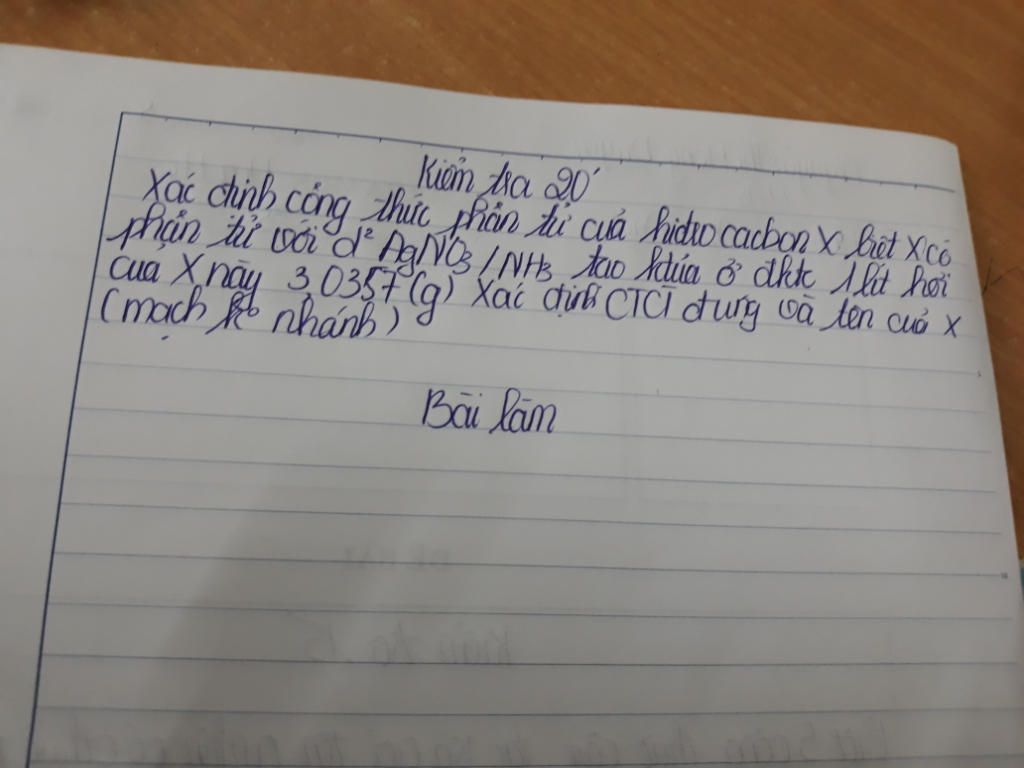 Kiểm tra 20'
Xác định công thức phân tử cuả hidro cacbon X biết X có
phản tử với d² AgNO3 / NH3 tạo ktủa ở đktc 1 lít hơi
cuả X này 3,0357 (g) Xác định CTCT đúng và tên cuả X
(mạch ko nhánh)
Bài làm